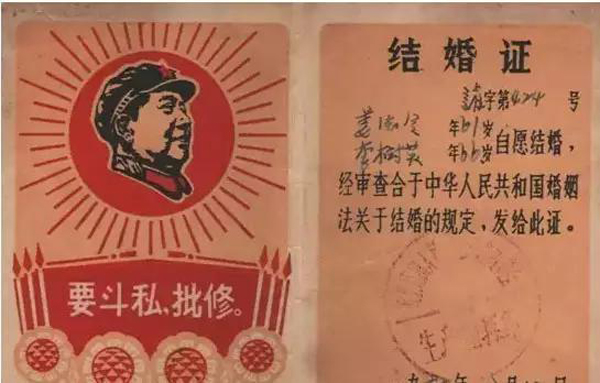 要斗私、批修。
结婚证
字第424号
年61岁
李树英 年66岁 自愿结婚，
经审查合于中华人民共和国婚姻
法关于结婚的规定，发给此证。